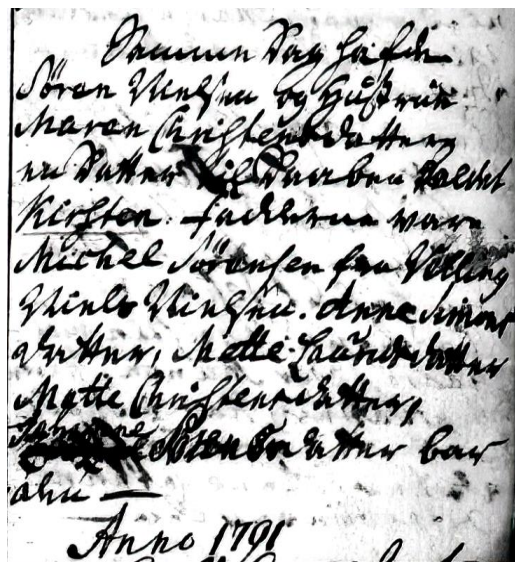 Samme Dag hafde
Sören Nielsen og Hustrue
Maren Christensdatter
en Datter til Daaben kaldet
Kirsten. Fadderne var
Michel Sörensen fra Velling
Niels Nielsen. Anne Simons
datter, Mette Lauridsdatter
Mette Christensdatter,
Johanne datter bar
den —
Anno 1791